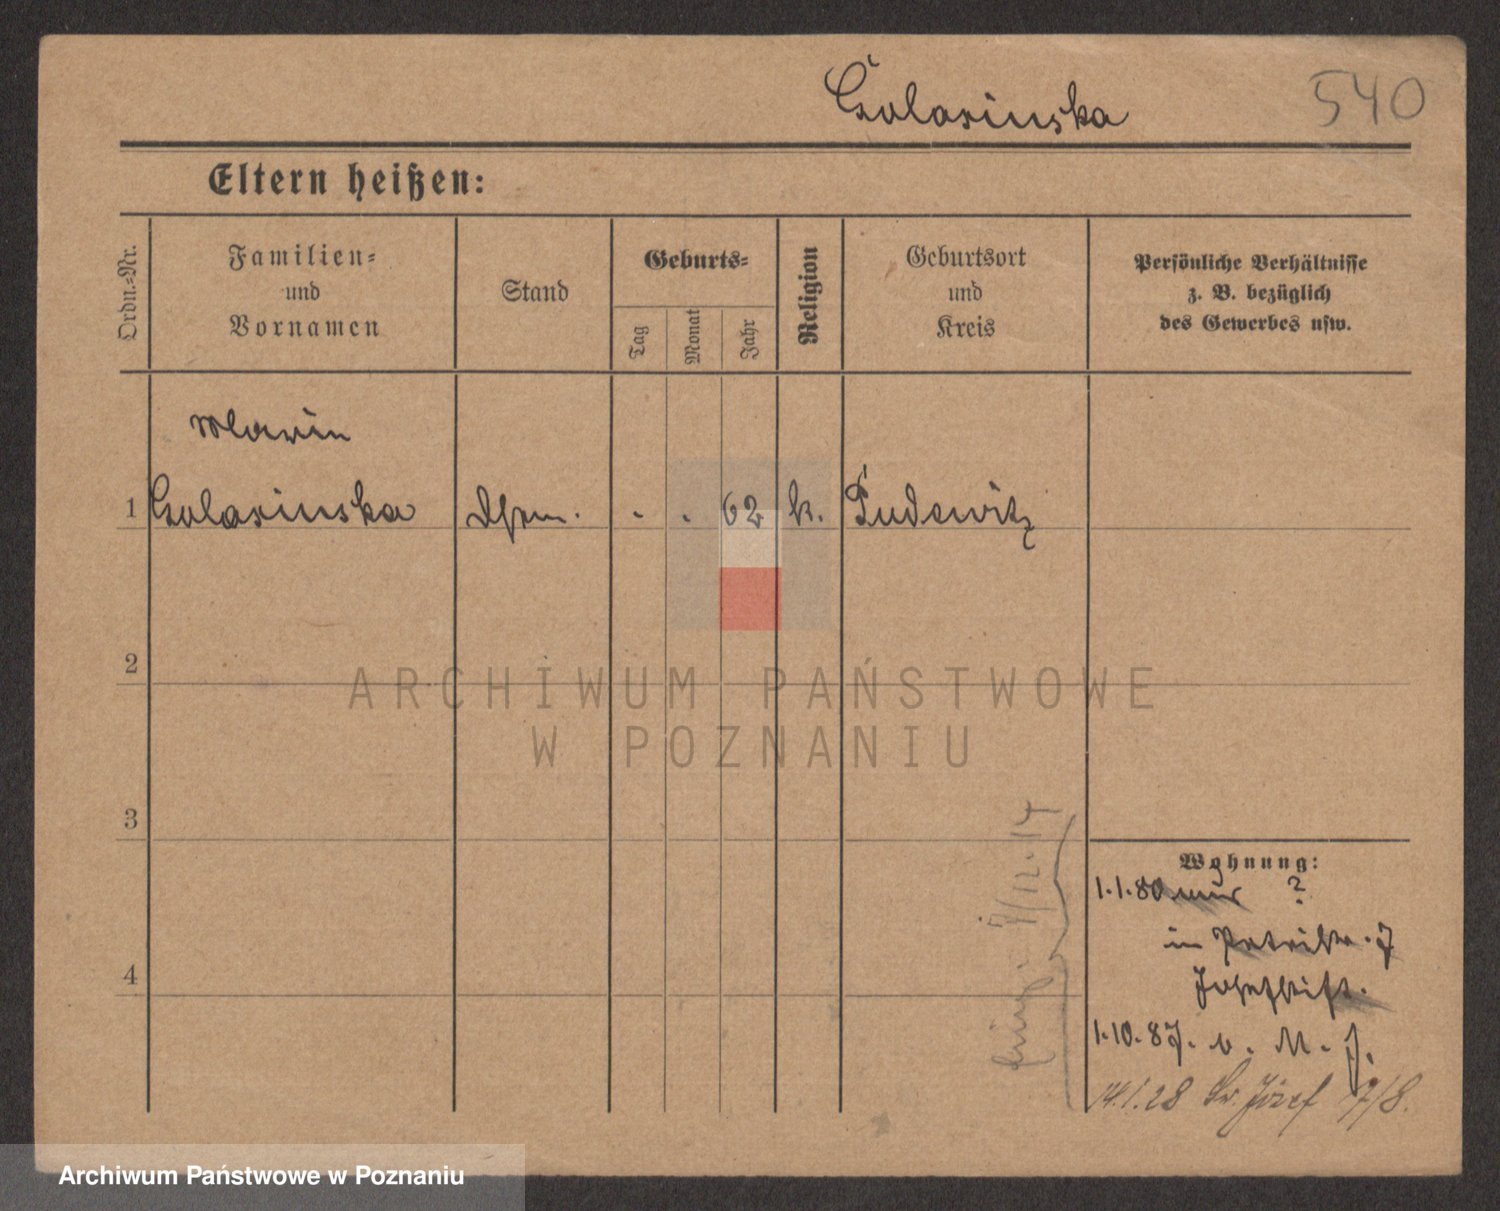 Golasinska 540
Eltern heißen:
Ordn.=Nr.
Familien=
und
Vornamen
Stand
Geburts=
Tag
Monat
Jahr
Religion
Geburtsort
und
Kreis
Persönliche Verhältnisse
z. B. bezüglich
des Gewerbes usw.
Maria
1 Golasinska . . 62 k. Pudewitz
2
3
4
Wohnung:
1.1.80 ?
in 7
Josephstift.
1.10.87. v. M. J.
14.1.28 Św. Józef 7/8.
7/12.17
ARCHIWUM PAŃSTWOWE
W POZNANIU
Archiwum Państwowe w Poznaniu